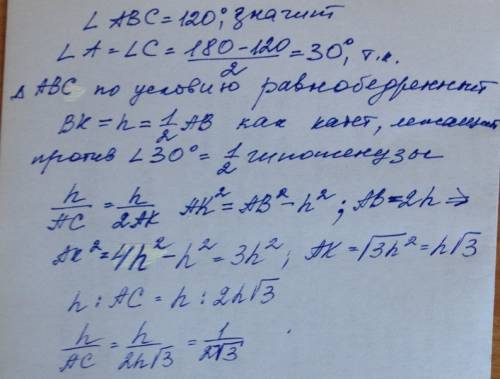 ∠ ABC = 120°, значит
∠ A = ∠ C = (180 - 120)/2 = 30°, т.к.
Δ ABC по условию равнобедренный
BK = h = 1/2 AB как катет, лежащий
против ∠ 30° = 1/2 гипотенузы
h/AC = h/2AK AK² = AB² - h²; AB = 2h ⇒
AK² = 4h² - h² = 3h²; AK = √3h² = h√3
h : AC = h : 2h√3
h/AC = h/2h√3 = 1/2√3